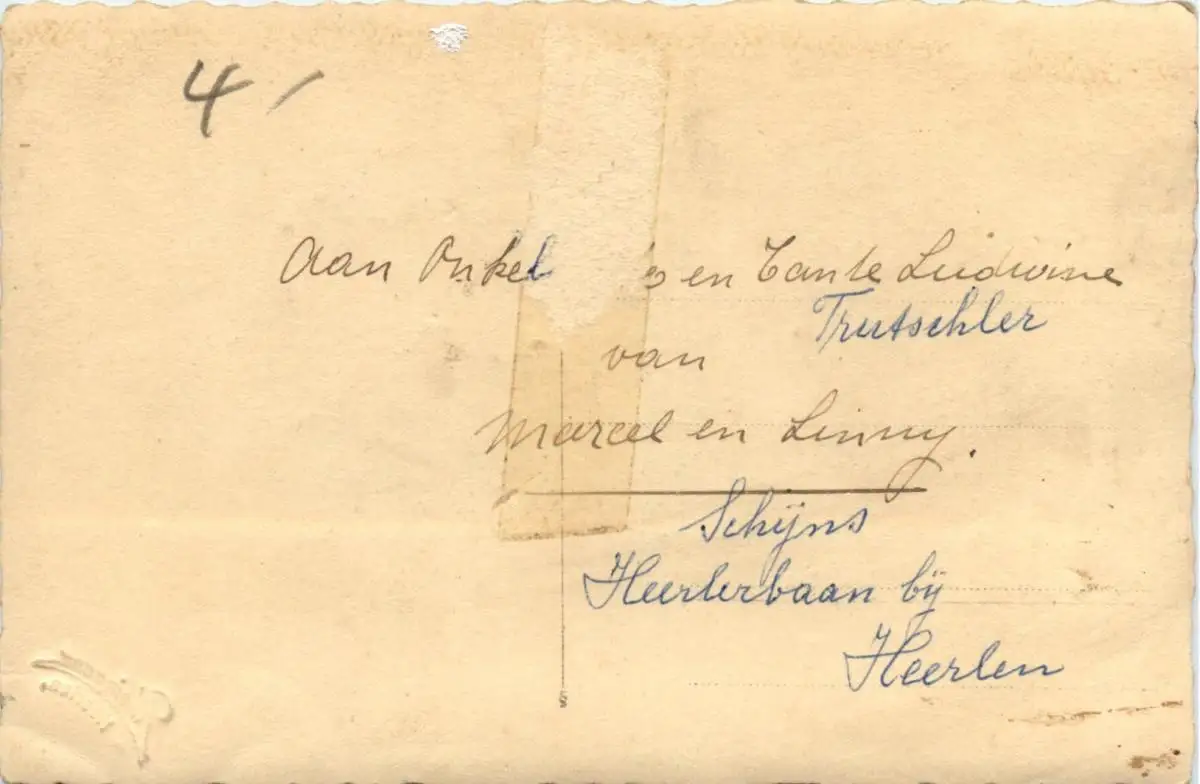 4 /
Aan Onkel en Tante Ludwine
Trutschler
van
Marcel en Linny.
Schijns
Heerlerbaan bij
Heerlen